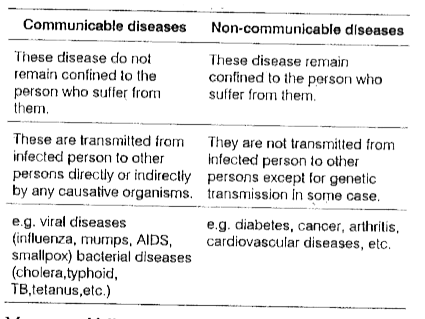 Communicable diseases
Non-communicable diseases
These disease do not
remain confined to the
person who suffer from
them.
These disease remain
confined to the person who
suffer from them.
These are transmitted from
infected person to other
persons directly or indirectly
by any causative organisms.
They are not transmitted from
infected person to other
persons except for genetic
transmission in some case.
e.g. viral diseases
(influenza, mumps, AIDS,
smallpox) bacterial diseases
(cholera,typhoid,
TB,tetanus,etc.)
e.g. diabetes, cancer, arthritis,
cardiovascular diseases, etc.